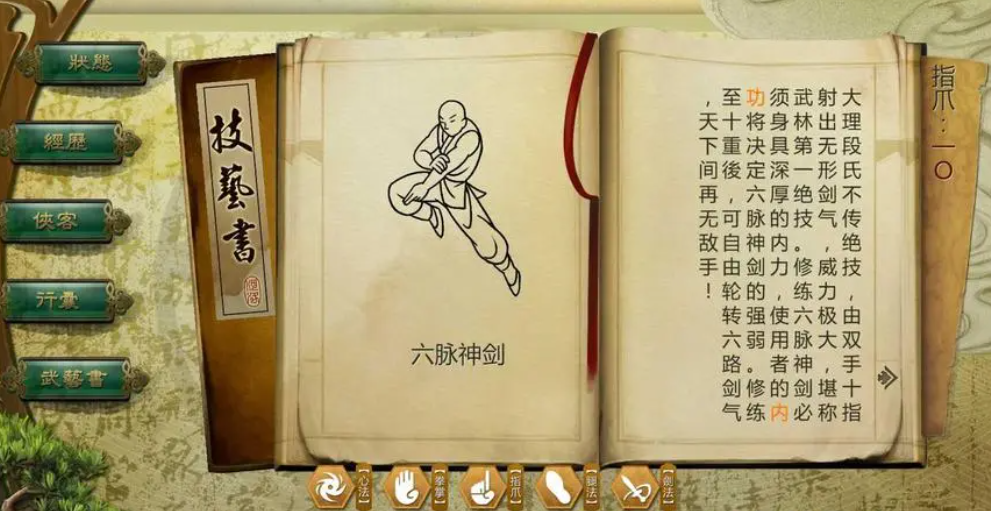 狀態
經歷
俠客
行囊
武藝書
技藝書
六脉神剑
指爪：一〇
大理段氏不传绝技，由双手十指
射出无形剑气，威力极大，堪称
武林第一绝技。修练六脉神剑必
须身具深厚的内力，使用者的内
功将决定六脉神剑的强弱。修练
至十重後，可自由轮转六路剑气
，天下间再无敌手！
【心法】
【拳掌】
【指爪】
【腿法】
【劍法】